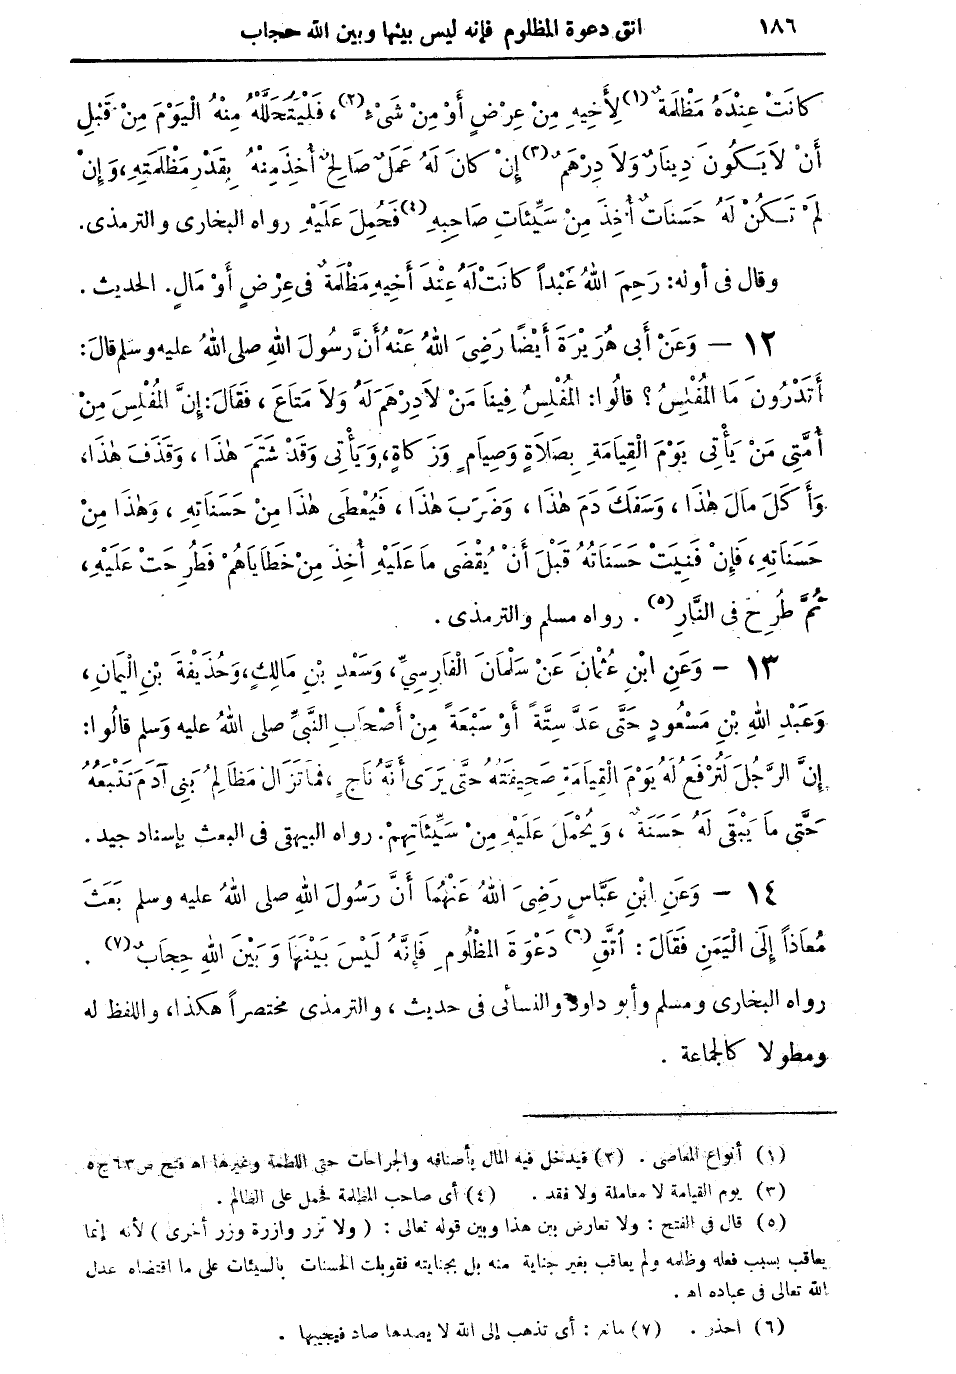 ١٨٦ اتق دعوة المظلوم فإنه ليس بينها وبين الله حجاب
كَانَتْ عِنْدَهُ مَظْلَمَةٌ (١) لِأَخِيهِ مِنْ عِرْضٍ أَوْ مِنْ شَيْءٍ (٢)، فَلْيَتَحَلَّلْهُ مِنْهُ الْيَوْمَ مِنْ قَبْلِ
أَنْ لَا يَكُونَ دِينَارٌ وَلَا دِرْهَمٌ (٣) إِنْ كَانَ لَهُ عَمَلٌ صَالِحٌ أُخِذَ مِنْهُ بِقَدْرِ مَظْلَمَتِهِ، وَإِنْ
لَمْ تَكُنْ لَهُ حَسَنَاتٌ أُخِذَ مِنْ سَيِّئَاتِ صَاحِبِهِ (٤) فَحُمِلَ عَلَيْهِ رواه البخارى والترمذى.
وقال فى أوله: رَحِمَ اللهُ عَبْداً كَانَتْ لَهُ عِنْدَ أَخِيهِ مَظْلَمَةٌ فى عِرْضٍ أَوْ مَالٍ. الحديث.
١٢ — وَعَنْ أَبِى هُرَيْرَةَ أَيْضًا رَضِىَ اللهُ عَنْهُ أَنَّ رَسُولَ اللهِ صلى اللهُ عليه وسلم قَالَ:
أَتَدْرُونَ مَا الْمُفْلِسُ؟ قَالُوا: الْمُفْلِسُ فِينَا مَنْ لَا دِرْهَمَ لَهُ وَلَا مَتَاعَ، فَقَالَ: إِنَّ الْمُفْلِسَ مِنْ
أُمَّتِى مَنْ يَأْتِى يَوْمَ الْقِيَامَةِ بِصَلَاةٍ وَصِيَامٍ وَزَكَاةٍ، وَيَأْتِى وَقَدْ شَتَمَ هٰذَا، وَقَذَفَ هٰذَا،
وَأَكَلَ مَالَ هٰذَا، وَسَفَكَ دَمَ هٰذَا، وَضَرَبَ هٰذَا، فَيُعْطَى هٰذَا مِنْ حَسَنَاتِهِ، وَهٰذَا مِنْ
حَسَنَاتِهِ، فَإِنْ فَنِيَتْ حَسَنَاتُهُ قَبْلَ أَنْ يُقْضَى مَا عَلَيْهِ أُخِذَ مِنْ خَطَايَاهُمْ فَطُرِحَتْ عَلَيْهِ،
ثُمَّ طُرِحَ فى النَّارِ (٥). رواه مسلم والترمذى.
١٣ - وَعَنِ ابْنِ عُثْمَانَ عَنْ سَلْمَانَ الْفَارِسِيِّ، وَسَعْدِ بْنِ مَالِكٍ، وَحُذَيْفَةَ بْنِ الْيَمَانِ،
وَعَبْدِ اللهِ بْنِ مَسْعُودٍ حَتَّى عَدَّ سِتَّةً أَوْ سَبْعَةً مِنْ أَصْحَابِ النَّبِيِّ صلى اللهُ عليه وَسلم قالُوا:
إِنَّ الرَّجُلَ لَتُرْفَعُ لَهُ يَوْمَ الْقِيَامَةِ صَحِيفَتُهُ حَتَّى يَرَى أَنَّهُ نَاجٍ، فَمَا تَزَالُ مَظَالِمُ بَنِى آدَمَ تَتْبَعُهُ
حَتَّى مَا يَبْقَى لَهُ حَسَنَةٌ، وَيُحْمَلُ عَلَيْهِ مِنْ سَيِّئَاتِهِمْ. رواه البيهقى فى البعث بإسناد جيد.
١٤ - وَعَنِ ابْنِ عَبَّاسٍ رَضِىَ اللهُ عَنْهُمَا أَنَّ رَسُولَ اللهِ صلى اللهُ عليه وسلم بَعَثَ
مُعَاذاً إِلَى الْيَمَنِ فَقَالَ: اتَّقِ (٦) دَعْوَةَ الْمَظْلُومِ فَإِنَّهُ لَيْسَ بَيْنَهَا وَبَيْنَ اللهِ حِجَابٌ (٧).
رواه البخارى ومسلم وأبو داود والنسائى فى حديث، والترمذى مختصراً هكذا، واللفظ له
ومطولا كالجماعة.
(١) أنواع المعاصى. (٢) فيدخل فيه المال بأصنافه والجراحات حتى اللطمة وغيرها اه فتح ص ٦٣ ج ٥
(٣) يوم القيامة لا معاملة ولا نقد. (٤) أى صاحب المظلمة فحمل على الظالم.
(٥) قال فى الفتح: ولا تعارض بين هذا وبين قوله تعالى: (ولا تزر وازرة وزر أخرى) لأنه إنما
يعاقب بسبب فعله وظلمه ولم يعاقب بغير جناية منه بل بجنايته فقوبلت الحسنات بالسيئات على ما اقتضاه عدل
الله تعالى فى عباده اه.
(٦) احذر. (٧) مانع: أى تذهب إلى الله لا يصدها صاد فيجيبها.